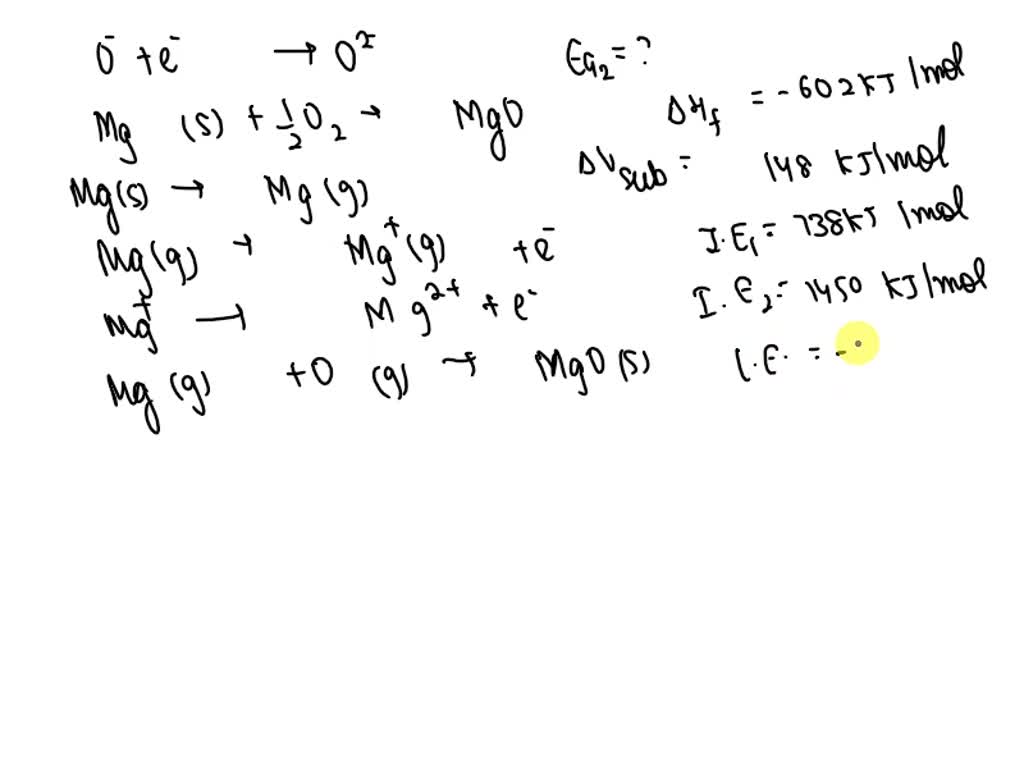 O⁻ + e⁻ → O²⁻ Ea₂ = ?
Mg (s) + 1/2 O₂ → MgO ΔHf = -602 KJ/mol
Mg(s) → Mg(g) ΔHsub = 148 KJ/mol
Mg(g) → Mg⁺(g) + e⁻ I.E₁ = 738KJ/mol
Mg⁺ → Mg²⁺ + e⁻ I.E₂ = 1450 KJ/mol
Mg (g) + O (g) → MgO(s) L.E. = -